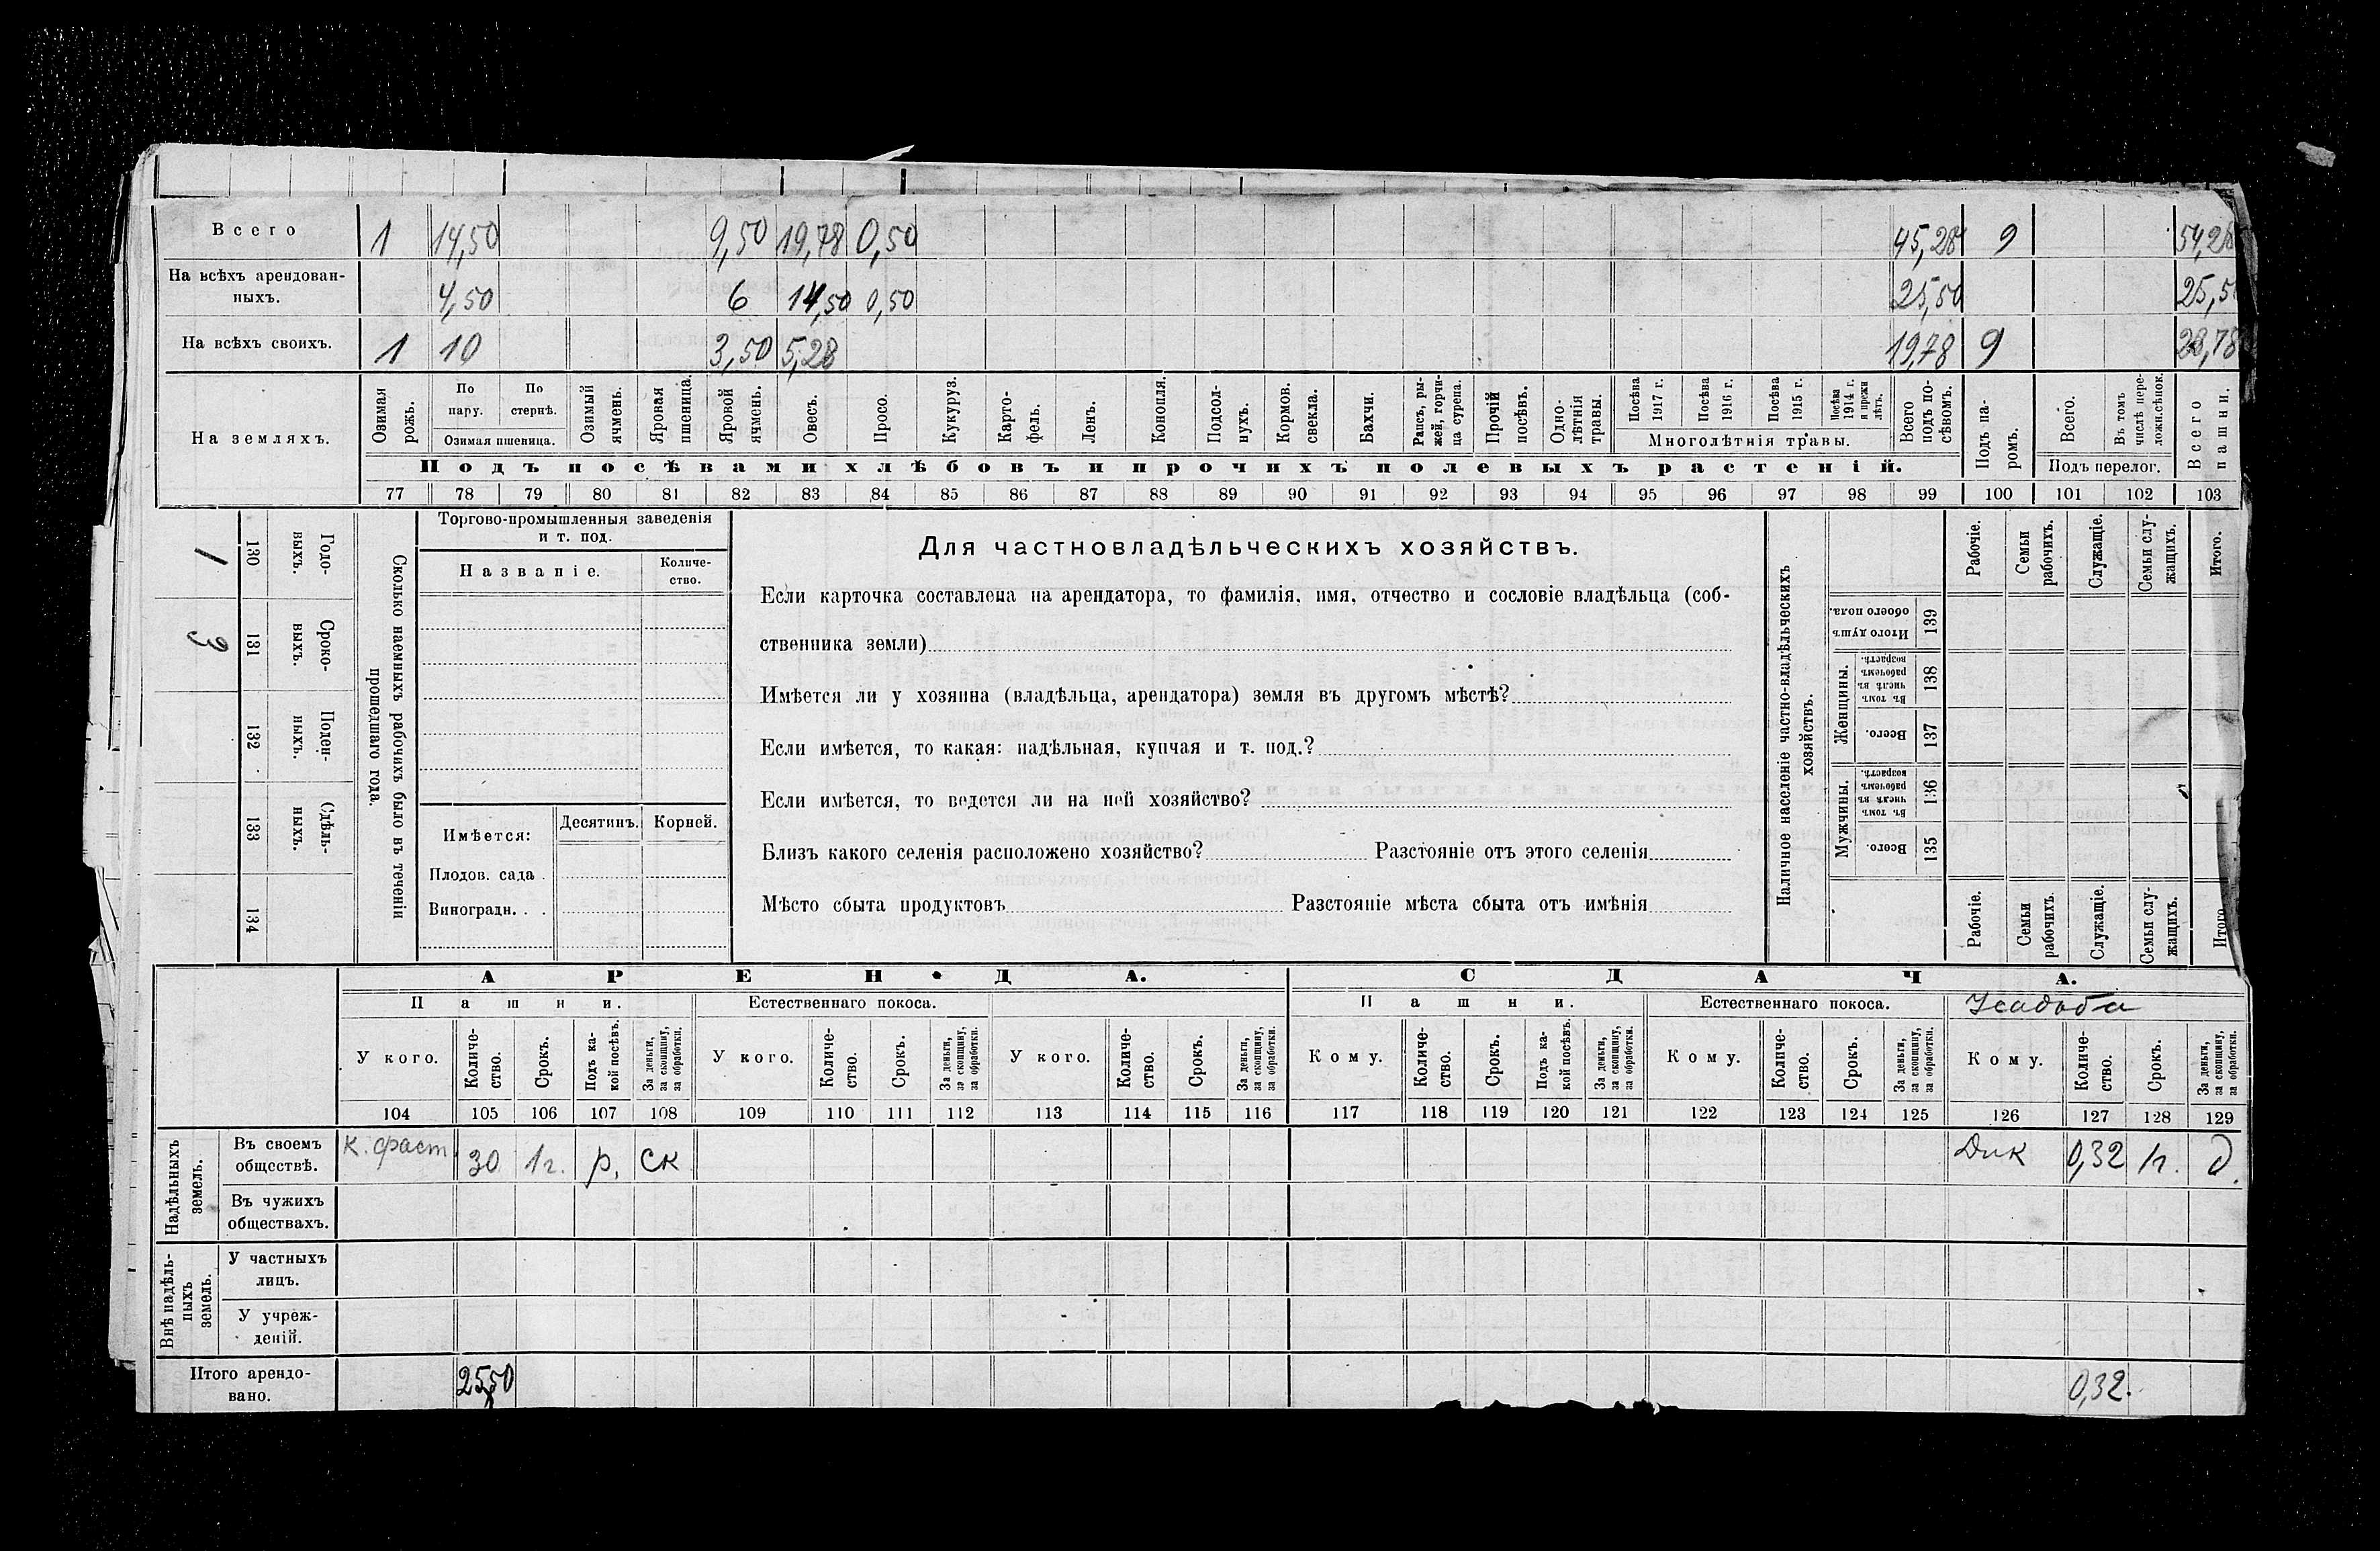 Всего 1 14,50 9,50 19,78 0,50 45,28 9 54,28
На всѣхъ арендован-
ныхъ. 4,50 6 14,50 0,50 25,50 25,5
На всѣхъ своихъ. 1 10 3,50 5,28 19,78 9 28,78
На земляхъ.
Озимая рожь.
По пару.
По стернѣ.
Озимая пшеница.
Озимый ячмень.
Яровая пшеница.
Яровой ячмень.
Овесъ.
Просо.
Кукуруз.
Карто-
фель.
Ленъ.
Конопля.
Подсол-
нухъ.
Кормов. свекла.
Бахчи.
Рапсъ, ры-
жей, горчи-
ца сурепа.
Прочій посѣвъ.
Одно-
лѣтнія травы.
Посѣва 1917 г.
Посѣва 1916 г.
Посѣва 1915 г.
Посѣва 1914 г. и прежн лѣтъ.
Многолѣтнія травы.
Всего подъ по-
сѣвомъ.
Подъ па-
ромъ.
Всего.
Въ томъ числѣ пере-
ложн.сѣнок.
Подъ перелог.
Всего пашни.
Подъ посѣвами хлѣбовъ и прочихъ полевыхъ растеній.
77 78 79 80 81 82 83 84 85 86 87 88 89 90 91 92 93 94 95 96 97 98 99 100 101 102 103
Сколько наемныхъ рабочихъ было въ теченіи
прошедшаго года.
Годо-
выхъ.
130
1
Сроко-
выхъ.
131
3
Поден-
ныхъ.
132
Сдѣль-
ныхъ.
133
134
Торгово-промышленныя заведенія
и т. под.
Названіе.
Количе-
ство.
Имѣется:
Десятинъ.
Корней.
Плодов. сада .
Виноградн. . .
Для частновладѣльческихъ хозяйствъ.
Если карточка составлена на арендатора, то фамилія, имя, отчество и сословіе владѣльца (соб-
ственника земли)
Имѣется ли у хозяина (владѣльца, арендатора) земля въ другомъ мѣстѣ?
Если имѣется, то какая: надѣльная, купчая и т. под.?
Если имѣется, то ведется ли на ней хозяйство?
Близъ какого селенія расположено хозяйство? Разстояніе отъ этого селенія
Мѣсто сбыта продуктовъ Разстояніе мѣста сбыта отъ имѣнія
Наличное населеніе частно-владѣльческихъ
хозяйствъ.
Итого душъ обоего пола.
139
Женщины.
Въ томъ числѣ въ рабочемъ возрастѣ.
138
Всего.
137
Мужчины.
Въ томъ числѣ въ рабочемъ возрастѣ.
136
Всего.
135
Рабочіе.
Семьи рабочихъ.
Служащіе.
Семьи слу-
жащихъ.
Итого.
Рабочіе.
Семьи рабочихъ.
Служащіе.
Семьи слу-
жащихъ.
Итого
АРЕНДА.
СДАЧА.
Пашни.
Естественнаго покоса.
Пашни.
Естественнаго покоса.
Усадьба
У кого.
Количе-
ство.
Срокъ.
Подъ ка-
кой посѣвъ.
За деньги, за скопщину, за обработки.
У кого.
Количе-
ство.
Срокъ.
За деньги, за скопщину, за обработки.
У кого.
Количе-
ство.
Срокъ.
За деньги, за скопщину, за обработки.
Кому.
Количе-
ство.
Срокъ.
Подъ ка-
кой посѣвъ.
За деньги, за скопщину, за обработки.
Кому.
Количе-
ство.
Срокъ.
За деньги, за скопщину, за обработки.
Кому.
Количе-
ство.
Срокъ.
За деньги, за скопщину, за обработки.
104 105 106 107 108 109 110 111 112 113 114 115 116 117 118 119 120 121 122 123 124 125 126 127 128 129
Надѣльныхъ
земель.
Въ своемъ
обществѣ.
К. фаст. 30 1г. р. ск Дик 0,32 1г. д.
Въ чужихъ
обществахъ.
Внѣ надѣль-
ныхъ
земель.
У частныхъ
лицъ.
У учреж-
деній.
Итого арендо-
вано. 25,50 0,32.